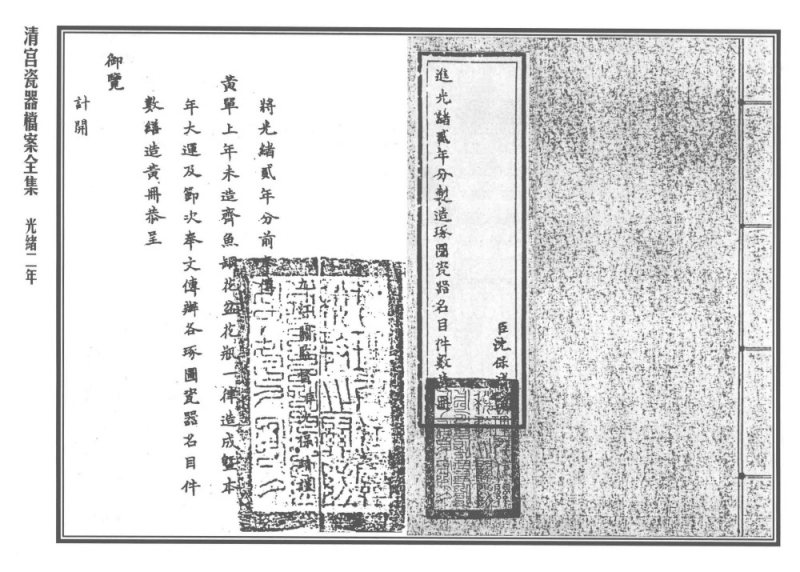 進光緒貳年分製造琢圓瓷器名目件數黃冊
臣沈保
九江關監督臣沈保靖謹
將光緒貳年分前奉傳
黃單上年未造齊魚缸花盆花瓶一律造成暨本
年大運及節次奉文傳辦各琢圓瓷器名目件
數繕造黃冊恭呈
御覽
計開
清宮瓷器檔案全集 光緒二年